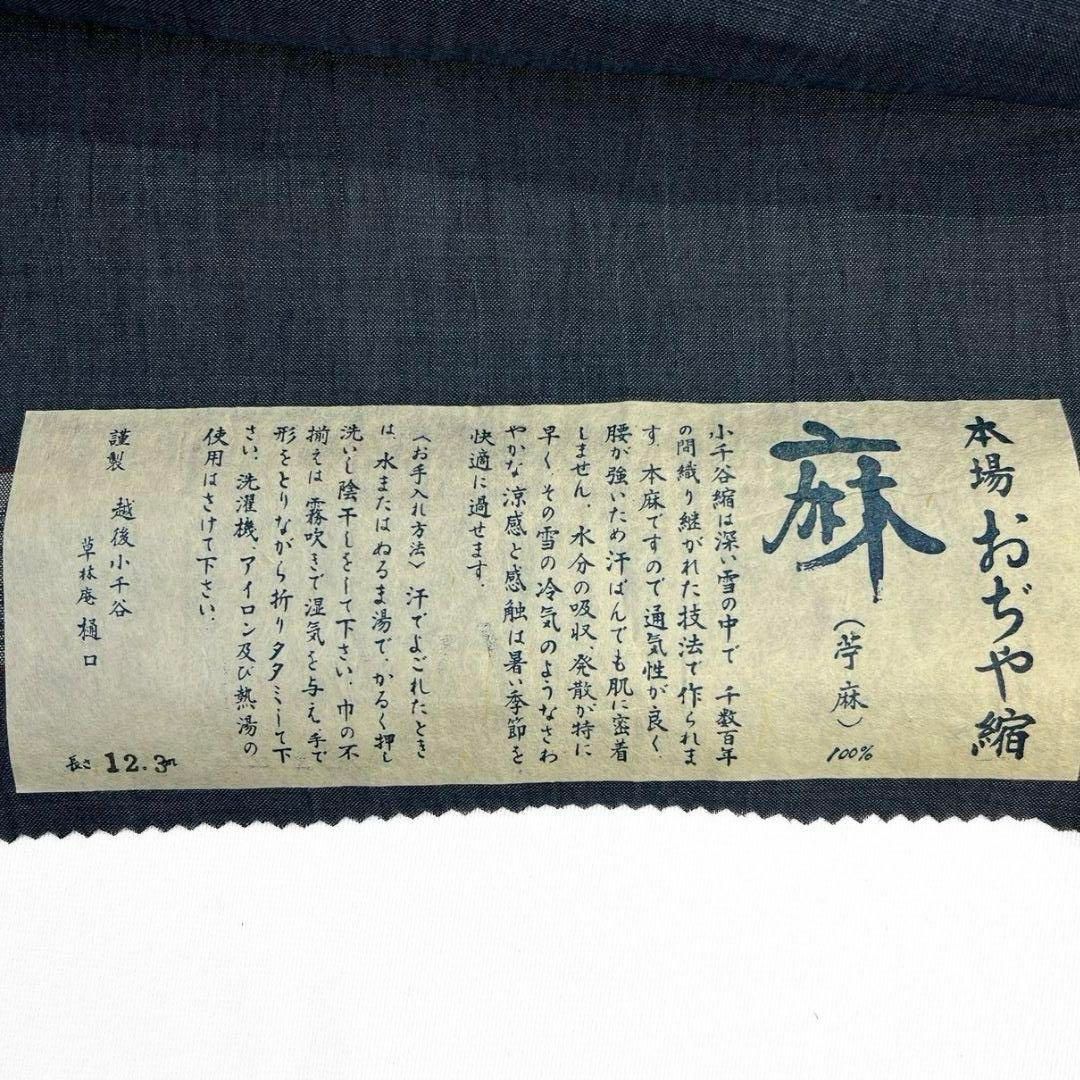 本場おぢや縮
麻
(苧麻)
100%
小千谷縮は深い雪の中で 千数百年
の間織り継がれた技法で作られま
す。本麻ですので通気性が良く、
腰が強いため汗ばんでも肌に密着
しません。水分の吸収、発散が特に
早く、その雪の冷気のようなさわ
やかな涼感と感触は暑い季節を
快適に過せます。
〈お手入れ方法〉 汗でよごれたとき
は、水またはぬるま湯で、かるく押し
洗いし陰干しをして下さい。巾の不
揃えは 霧吹きで湿気を与え手で
形をとりながら折りタタミして下
さい。洗濯機、アイロン及び熱湯の
使用はさけて下さい。
謹製 越後小千谷
草林庵 樋口
長さ 12.3m